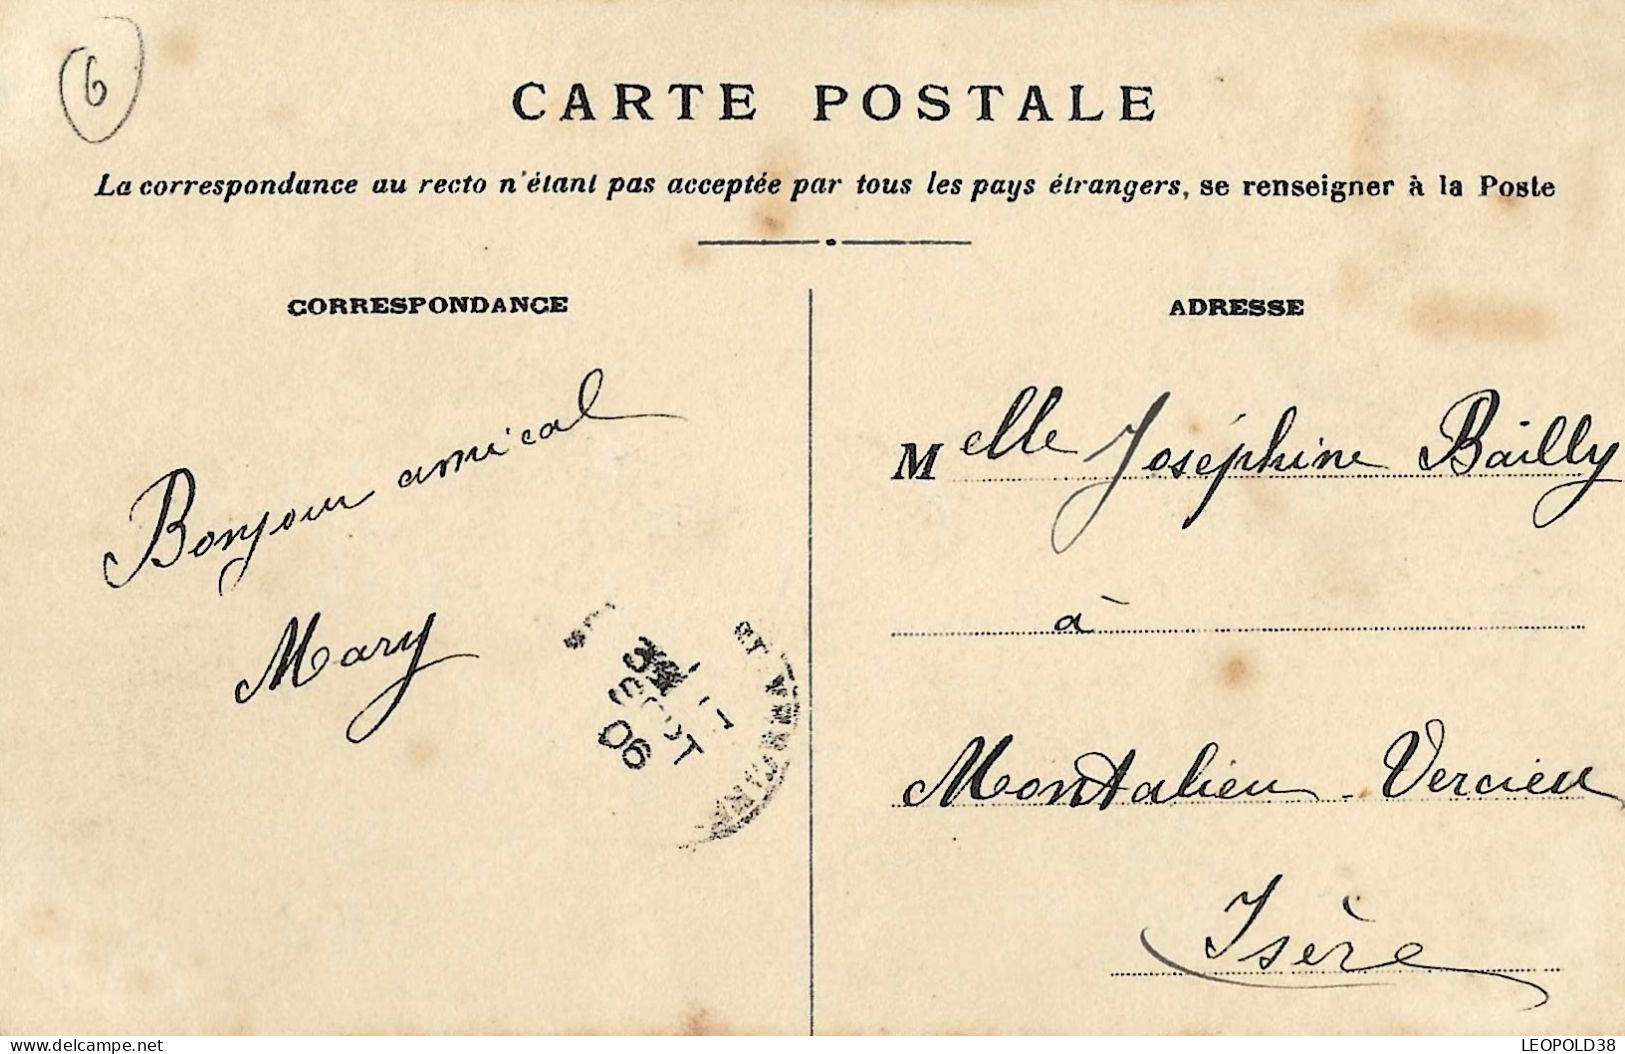 6
CARTE POSTALE
La correspondance au recto n'étant pas acceptée par tous les pays étrangers, se renseigner à la Poste
CORRESPONDANCE
Bonjour amical
Mary
ADRESSE
Melle Joséphine Bailly
à
Montalieu - Vercieu
Isère
SEPT
06
www.delcampe.net
LEOPOLD38